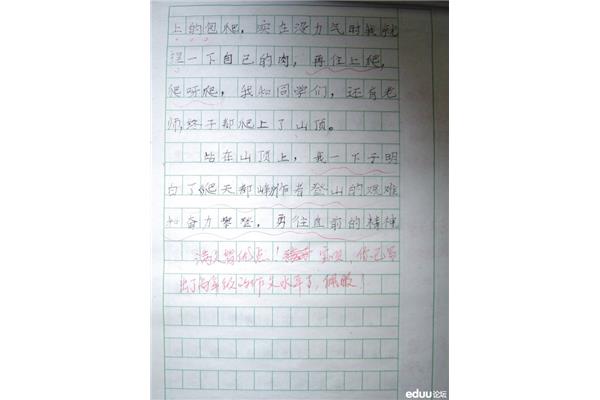 上的包爬，实在没力气时我就
捏一下自己的肉，再住上爬，
爬呀爬，我和同学们，还有老
师，终于都爬上了山顶。
站在山顶上，我一下子明
白了《爬天都峰》作者登山的艰难
和奋力攀登，勇往直前的精神
满文皆优点！宝贝，你已写
出了高年级的作文水平了，佩服！
eduu论坛